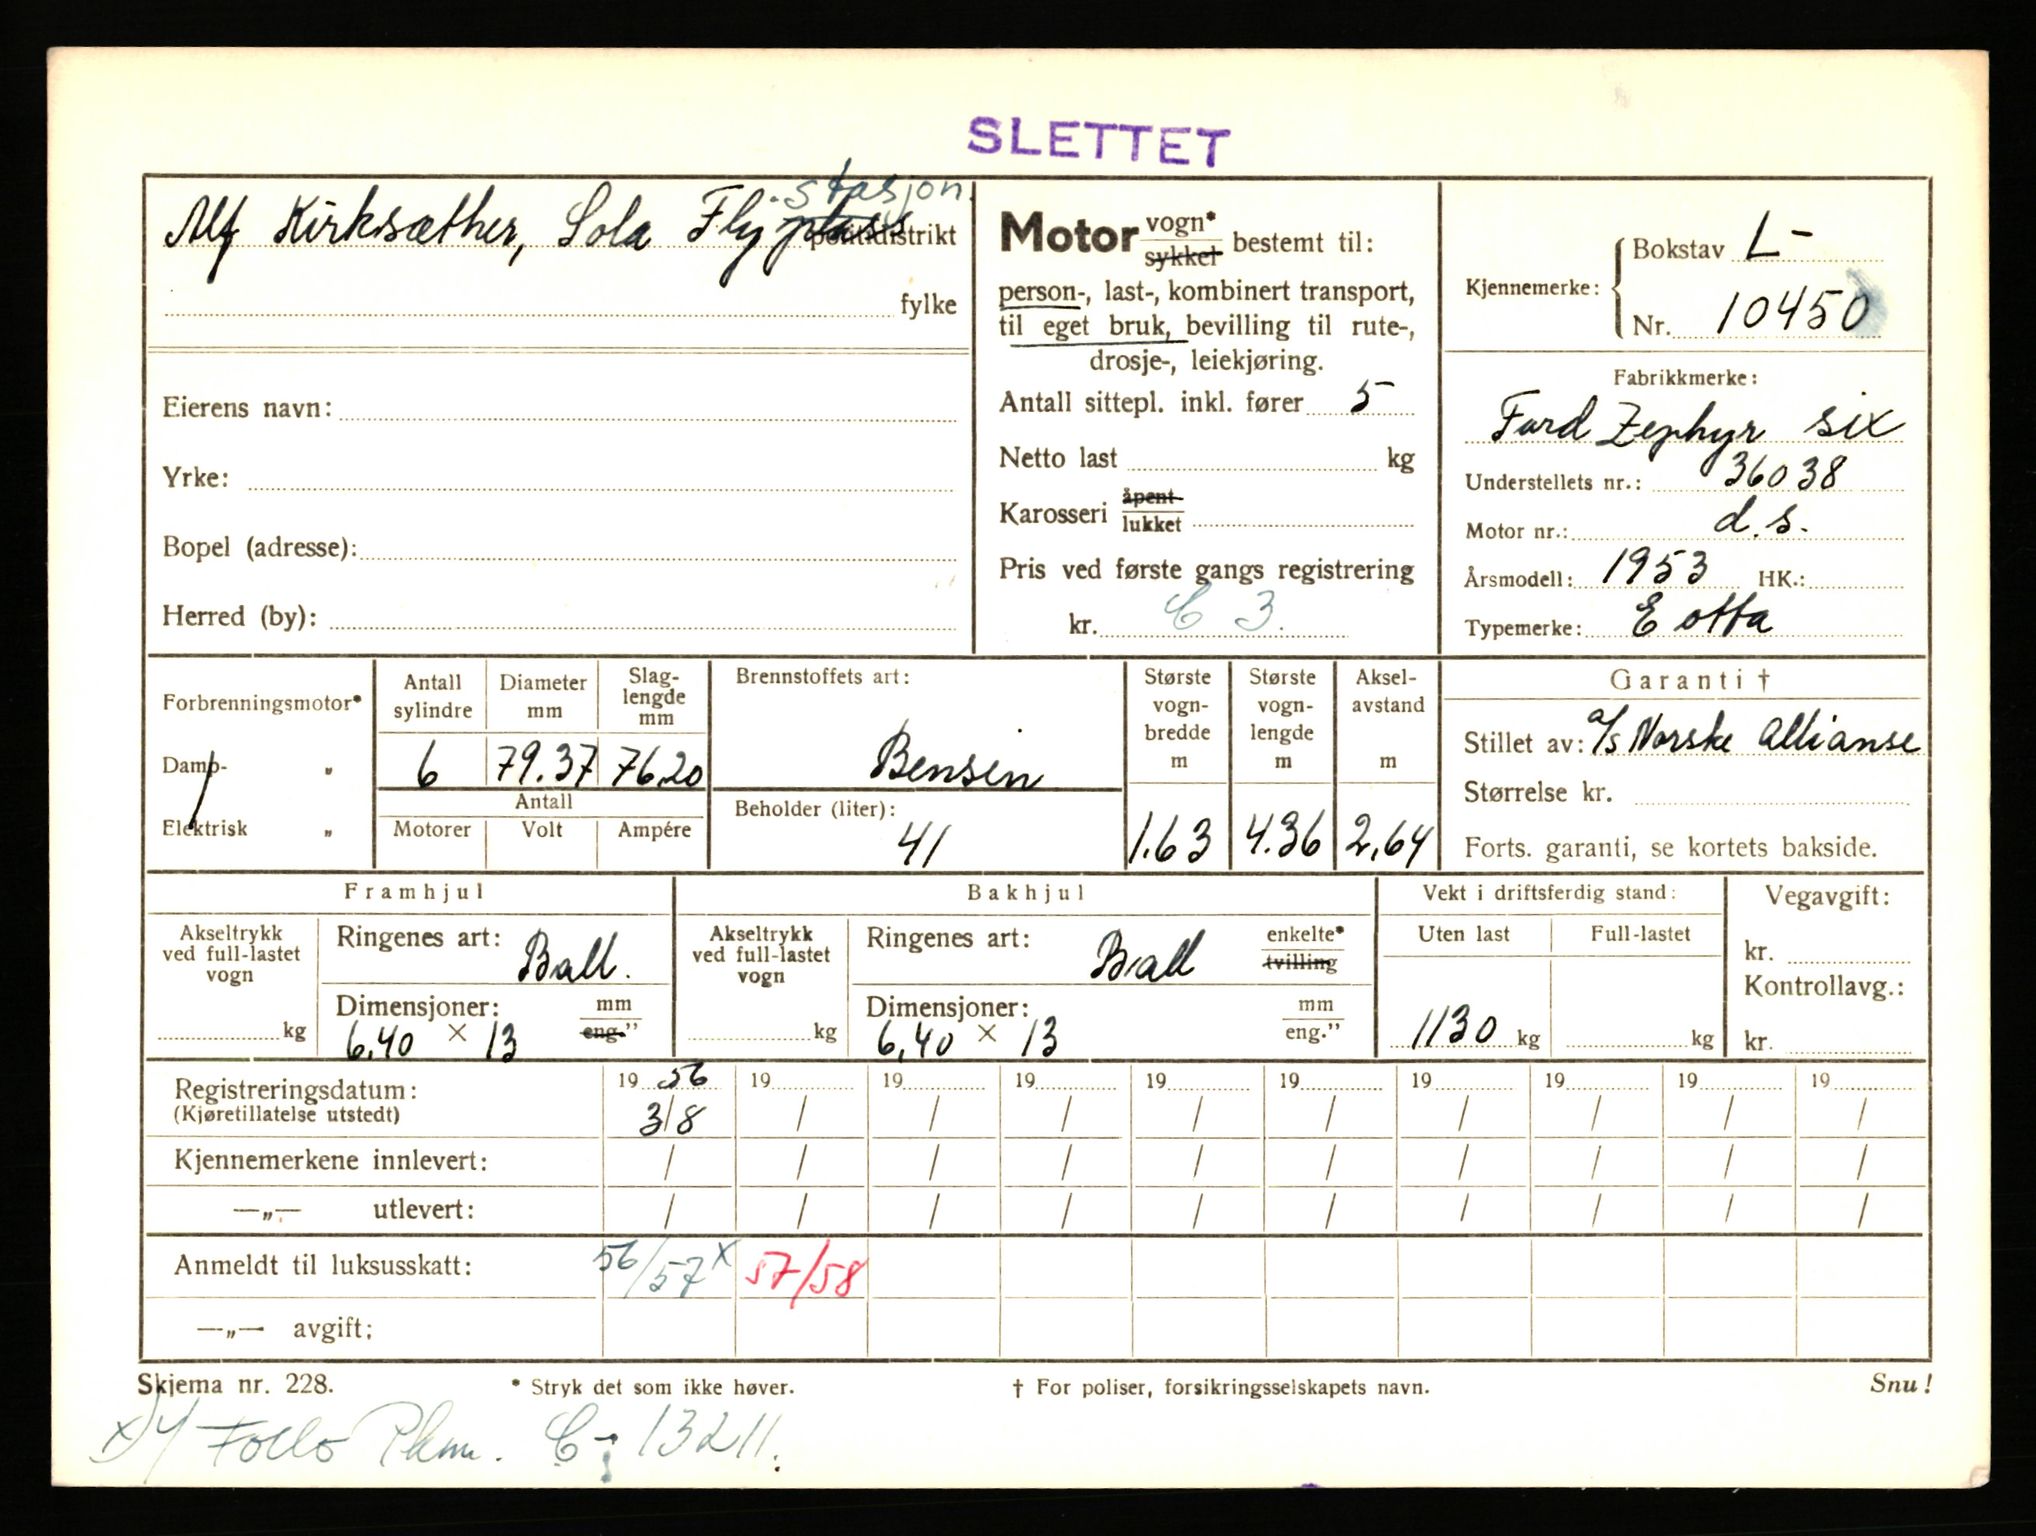 SLETTET
stasjon.
Alf Kirksæther, Sola Flyplass politidistrikt
fylke
Eierens navn:
Yrke:
Bopel (adresse):
Herred (by):
Motor vogn* sykkel bestemt til:
person-, last-, kombinert transport,
til eget bruk, bevilling til rute-,
drosje-, leiekjøring.
Antall sittepl. inkl. fører 5
Netto last kg
Karosseri åpent lukket
Pris ved første gangs registrering
kr. C 3.
Kjennemerke: Bokstav L-
Nr. 10450
Fabrikkmerke:
Ford Zephyr six
Understellets nr.: 36038
Motor nr.: d.s.
Årsmodell: 1953 HK.:
Typemerke: E otta
Forbrenningsmotor*
Damp- „
Elektrisk „
Antall sylindre
6
Diameter mm
79.37
Slag-lengde mm
76.20
Antall
Motorer Volt Ampére
Brennstoffets art:
Bensin
Beholder (liter):
41
Største vogn-bredde m
1.63
Største vogn-lengde m
4.36
Aksel-avstand m
2,64
Garanti †
Stillet av: a/s Norske Allianse
Størrelse kr.
Forts. garanti, se kortets bakside.
Framhjul
Akseltrykk ved full-lastet vogn
kg
Ringenes art: Ball.
Dimensjoner: mm eng."
6,40 × 13
Bakhjul
Akseltrykk ved full-lastet vogn
kg
Ringenes art: Ball enkelte* tvilling
Dimensjoner: mm eng."
6,40 × 13
Vekt i driftsferdig stand:
Uten last Full-lastet
1130 kg kg
Vegavgift:
kr.
Kontrollavg.:
kr.
Registreringsdatum: 19 56 19 19 19 19 19 19 19 19 19
(Kjøretillatelse utstedt) 3/8 / / / / / / / / /
Kjennemerkene innlevert: / / / / / / / / / /
—„— utlevert: / / / / / / / / / /
Anmeldt til luksusskatt: 56/57 x 57/58
—„— avgift:
Skjema nr. 228. * Stryk det som ikke høver. † For poliser, forsikringsselskapets navn. Snu!
Follo Pkm. C- 13211.